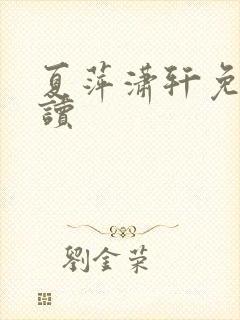 夏萍潇轩免
讀
劉金荣